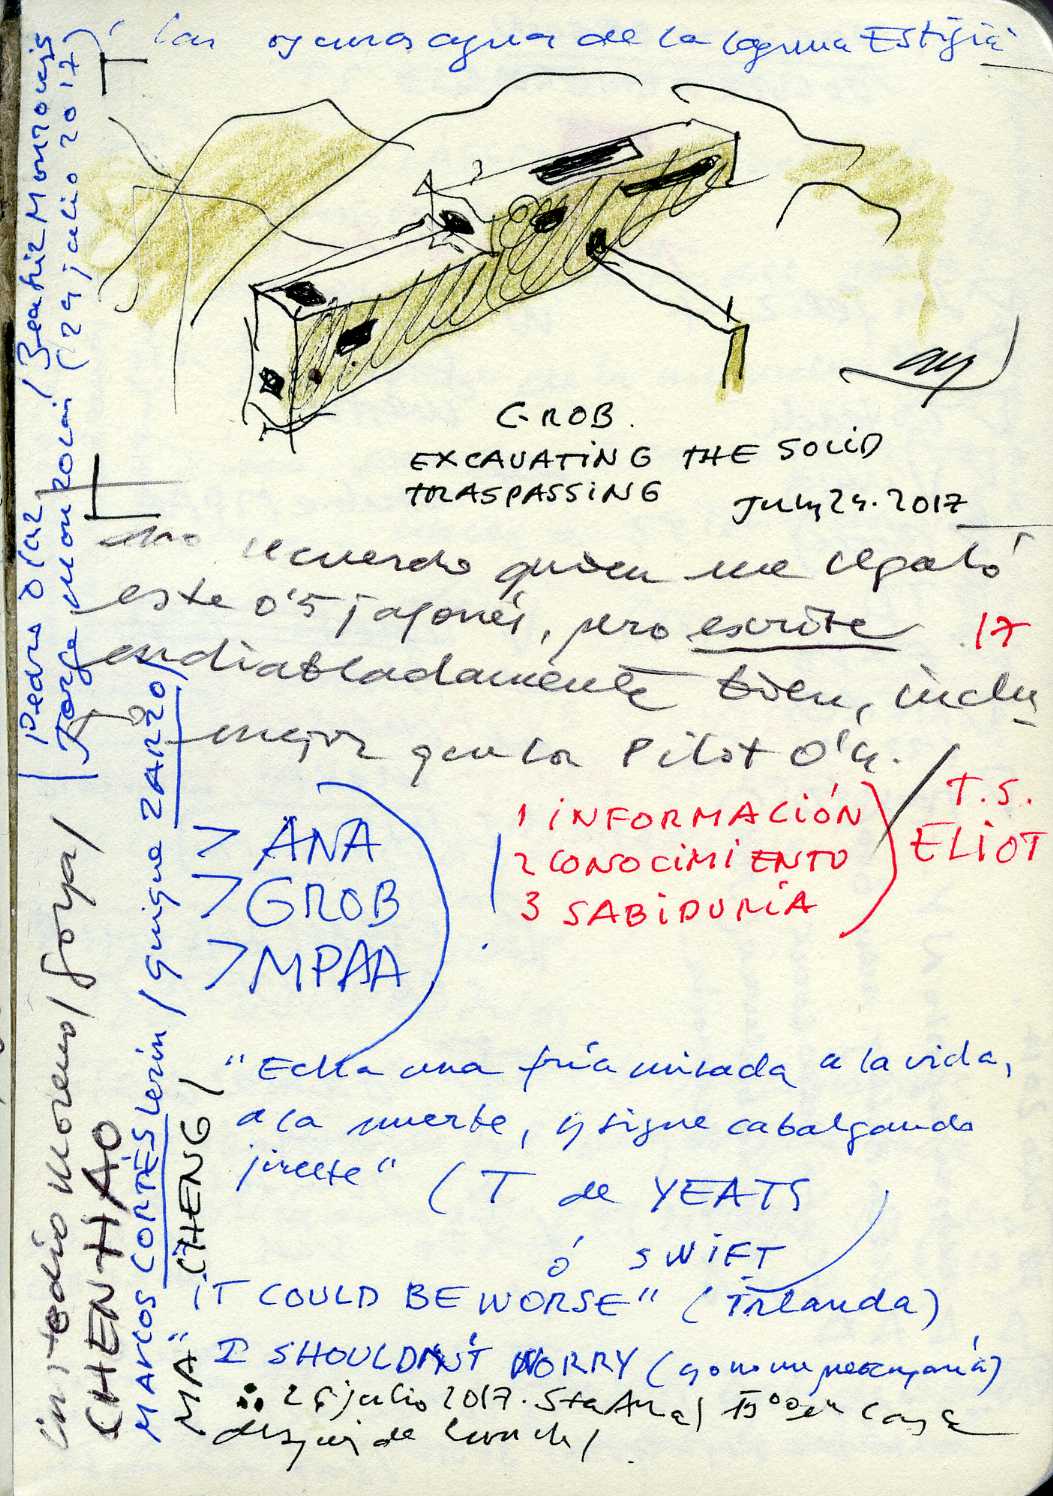 las oscuras aguas de la laguna ESTigia
GROB.
EXCAVATING THE SOLID
TRASPASSING July 29. 2017
no recuerdo quien me regaló
este 0'5 japonés, pero escribe
endiabladamente bien, inclu
mejor que la Pilot 0'4. /
17
> ANA
> GROB
> MPAA
1 INFORMACIÓN
2 CONOCIMIENTO
3 SABIDURÍA
T.S.
ELIOT
"Echa una fría mirada a la vida,
a la muerte, y sigue cabalgando
jinete" (T de YEATS
ó SWIFT
"IT COULD BE WORSE" (Irlanda)
I SHOULDN'T WORRY (yo no me preocuparía)
julio 2017. Sta Ana
después de lunch /
Pedro Diaz / Beatriz Monrovejo
Jorge (29 julio 2017)
Moreno / Goya /
CHEN HAO
MARCOS CORTÉS Lerín / Quique ZARZO /
MA CHENG /